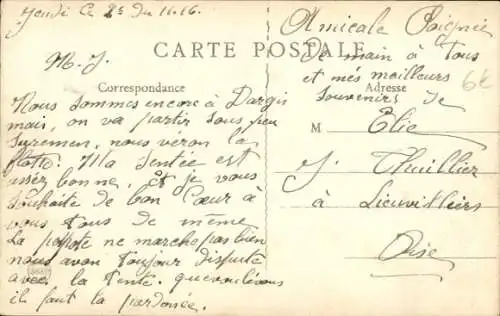 Jeudi Ce 25 du 11.16.
M. J.
CARTE POSTALE
Correspondance
Nous sommes encore à Dargis
mais, on va partir sous peu
suremen, nous véron la
flotte. Ma sentée est
assez bonne, et je vous
souhaite de bon Cœur à
vous tous de même
La popote ne marche pas bien
nous avon toujour disputé
avec la tente. que voulévous
il faut la pardonée.
Amicale Poignée
de main à tous
et més meilleurs
souvenirs de
Elie
6€
Adresse
M
J. Thuillier
à Lieuvilliers
Oise